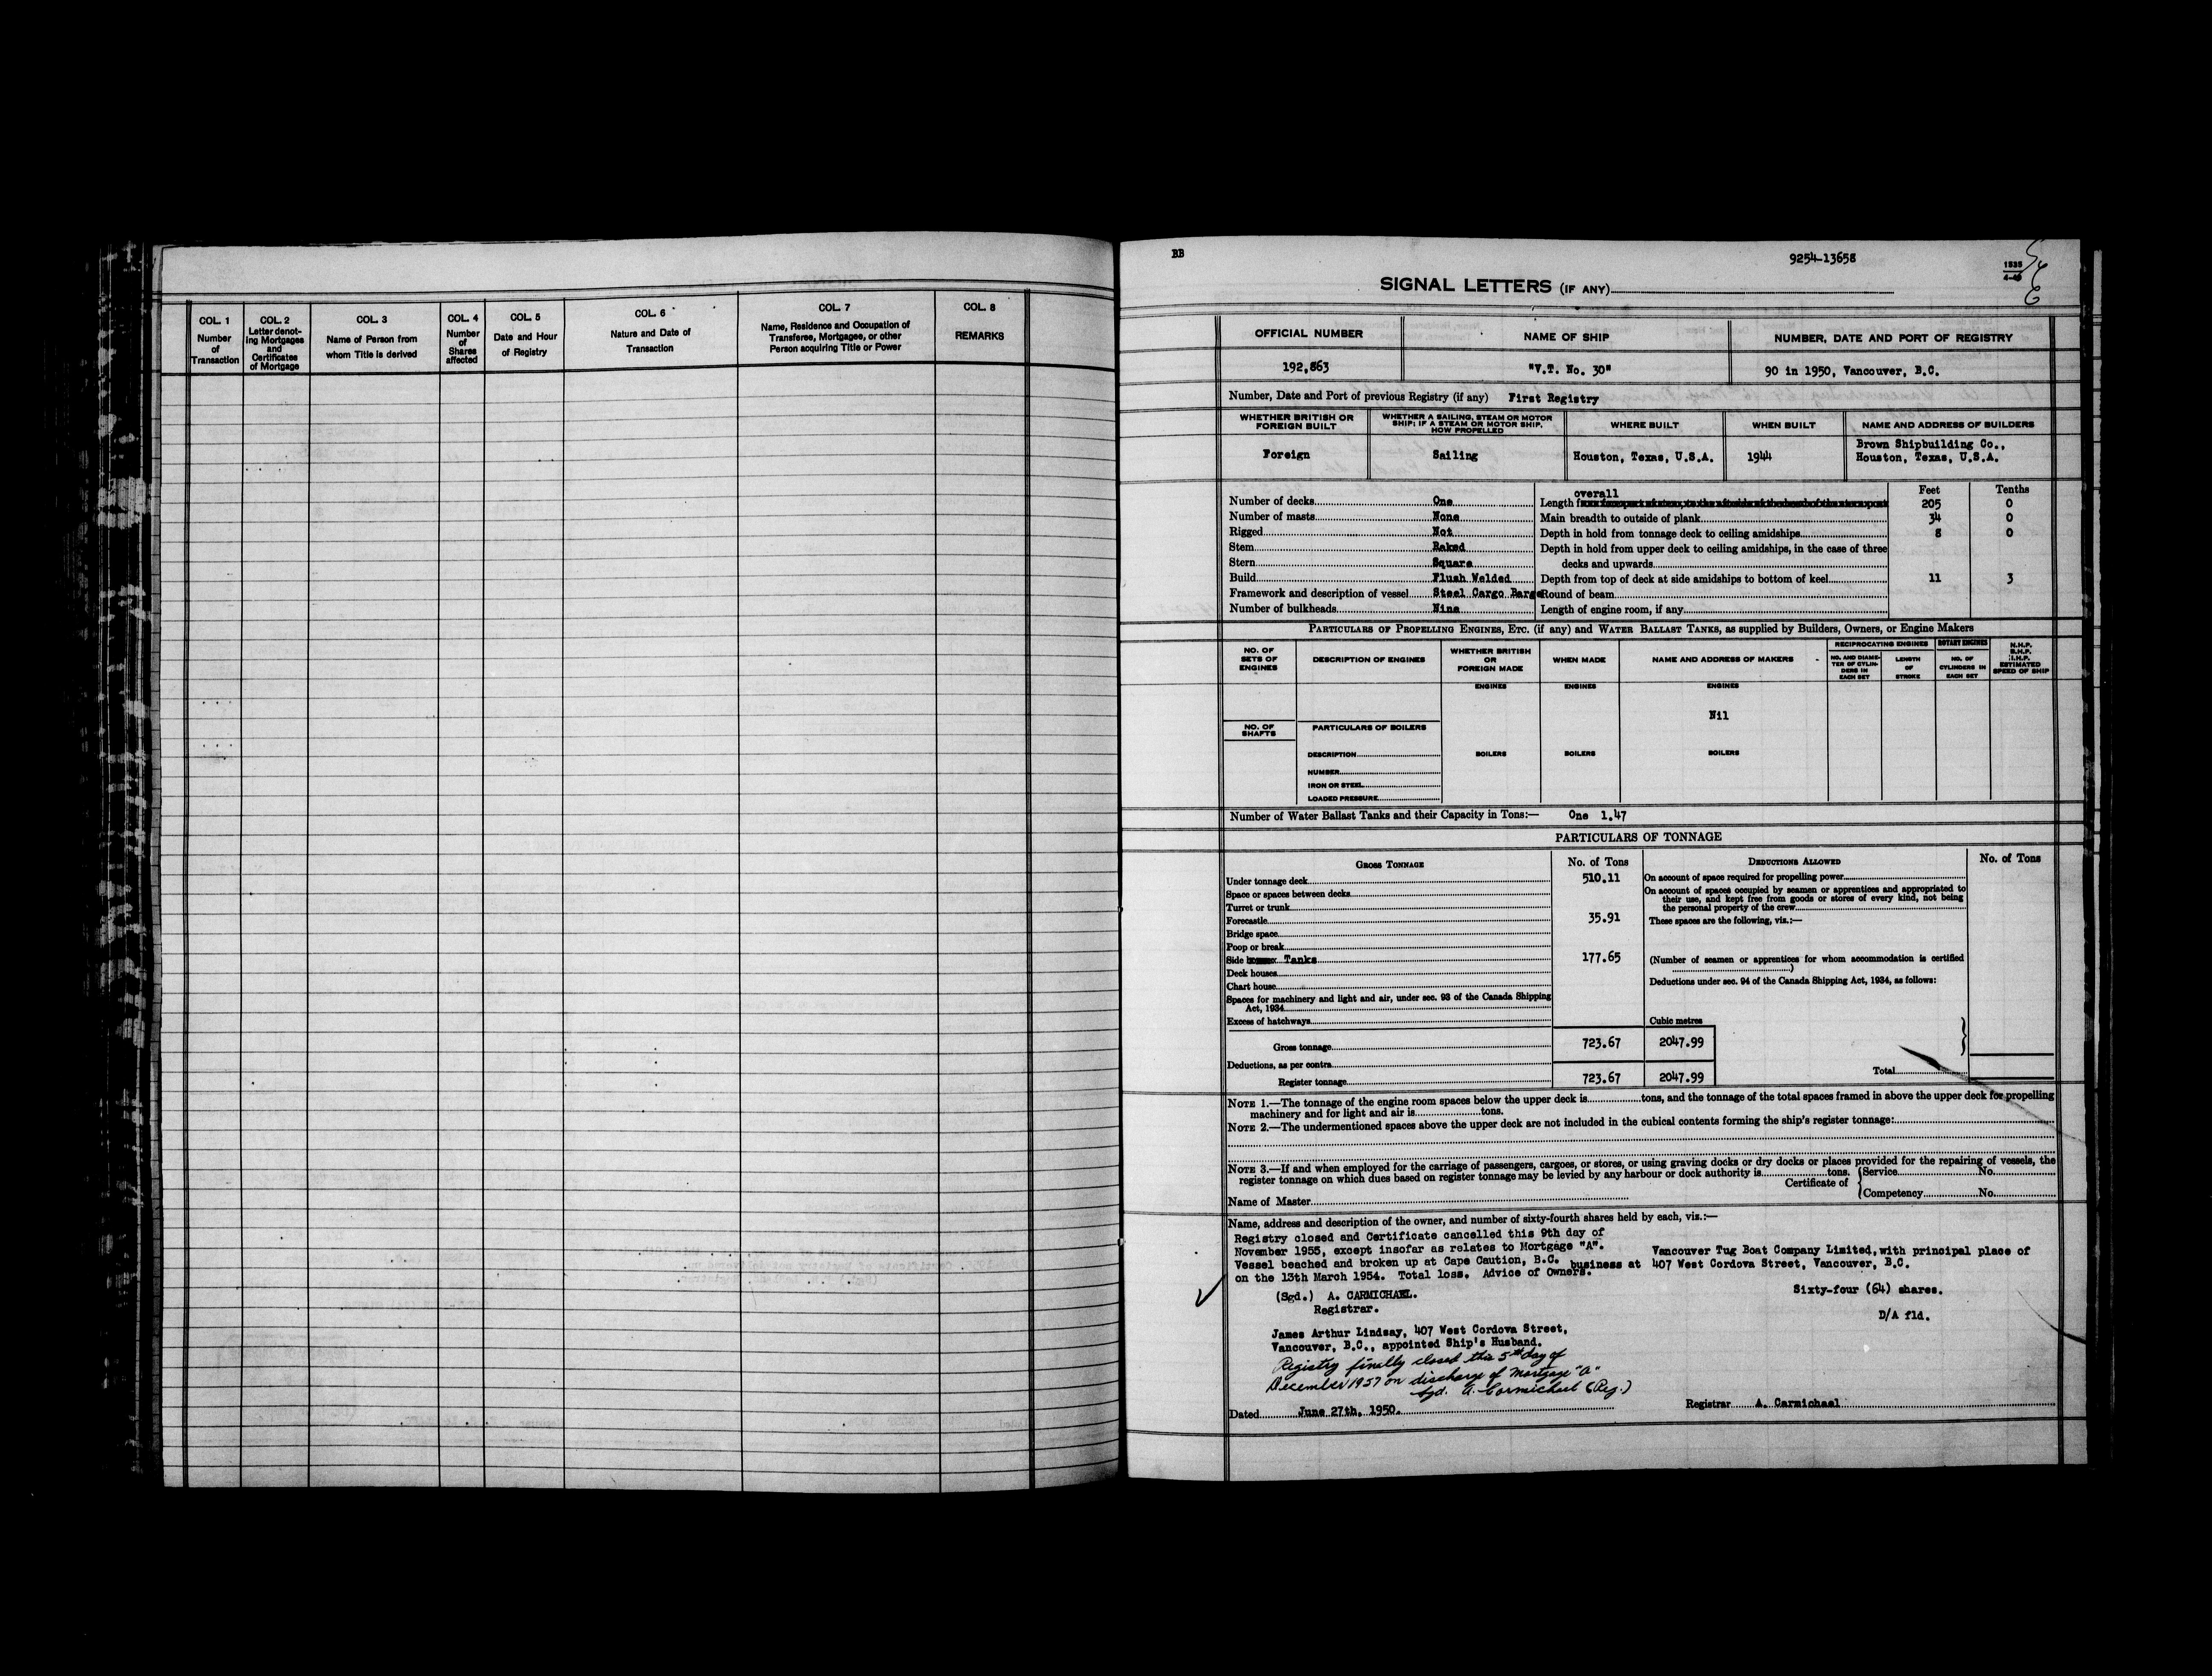 COL. 1
Number
of
Transaction
COL. 2
Letter denot-
ing Mortgages
and
Certificates
of Mortgage
COL. 3
Name of Person from
whom Title is derived
COL. 4
Number
of
Shares
affected
COL. 5
Date and Hour
of Registry
COL. 6
Nature and Date of
Transaction
COL. 7
Name, Residence and Occupation of
Transferee, Mortgagee, or other
Person acquiring Title or Power
COL. 8
REMARKS
BB
9254-13658
1535
4-49
SIGNAL LETTERS (IF ANY)
OFFICIAL NUMBER
NAME OF SHIP
NUMBER, DATE AND PORT OF REGISTRY
192,863
"V.T. No. 30"
90 in 1950, Vancouver, B.C.
Number, Date and Port of previous Registry (if any) First Registry
WHETHER BRITISH OR
FOREIGN BUILT
WHETHER A SAILING, STEAM OR MOTOR
SHIP; IF A STEAM OR MOTOR SHIP,
HOW PROPELLED
WHERE BUILT
WHEN BUILT
NAME AND ADDRESS OF BUILDERS
Foreign
Sailing
Houston, Texas, U.S.A.
1944
Brown Shipbuilding Co.,
Houston, Texas, U.S.A.
Feet
Tenths
Number of decks One
Number of masts None
Rigged Not
Stem Raked
Stern Square
Build Flush Welded
Framework and description of vessel Steel Cargo Barge
Number of bulkheads Nine
overall
Length 205 0
Main breadth to outside of plank 34 0
Depth in hold from tonnage deck to ceiling amidships 8 0
Depth in hold from upper deck to ceiling amidships, in the case of three
decks and upwards
Depth from top of deck at side amidships to bottom of keel 11 3
Round of beam
Length of engine room, if any
PARTICULARS OF PROPELLING ENGINES, ETC. (if any) and WATER BALLAST TANKS, as supplied by Builders, Owners, or Engine Makers
NO. OF
SETS OF
ENGINES
DESCRIPTION OF ENGINES
WHETHER BRITISH
OR
FOREIGN MADE
WHEN MADE
NAME AND ADDRESS OF MAKERS
RECIPROCATING ENGINES
NO. AND DIAME-
TER OF CYLIN-
DERS IN
EACH SET
LENGTH
OF
STROKE
ROTARY ENGINES
NO. OF
CYLINDERS IN
EACH SET
N.H.P.
B.H.P.
I.H.P.
ESTIMATED
SPEED OF SHIP
ENGINES
ENGINES
ENGINES
Nil
NO. OF
SHAFTS
PARTICULARS OF BOILERS
DESCRIPTION
BOILERS
BOILERS
BOILERS
NUMBER
IRON OR STEEL
LOADED PRESSURE
Number of Water Ballast Tanks and their Capacity in Tons:— One 1.47
PARTICULARS OF TONNAGE
GROSS TONNAGE
No. of Tons
Under tonnage deck 510.11
Space or spaces between decks
Turret or trunk
Forecastle 35.91
Bridge space
Poop or break
Side Tanks 177.65
Deck houses
Chart house
Spaces for machinery and light and air, under sec. 93 of the Canada Shipping
Act, 1934
Excess of hatchways
Cubic metres
Gross tonnage 723.67 2047.99
Deductions, as per contra
Register tonnage 723.67 2047.99
DEDUCTIONS ALLOWED
No. of Tons
On account of space required for propelling power
On account of spaces occupied by seamen or apprentices and appropriated to
their use, and kept free from goods or stores of every kind, not being
the personal property of the crew
These spaces are the following, viz.:—
(Number of seamen or apprentices for whom accommodation is certified
)
Deductions under sec. 94 of the Canada Shipping Act, 1934, as follows:
Total
NOTE 1.—The tonnage of the engine room spaces below the upper deck is tons, and the tonnage of the total spaces framed in above the upper deck for propelling
machinery and for light and air is tons.
NOTE 2.—The undermentioned spaces above the upper deck are not included in the cubical contents forming the ship's register tonnage:
NOTE 3.—If and when employed for the carriage of passengers, cargoes, or stores, or using graving docks or dry docks or places provided for the repairing of vessels, the
register tonnage on which dues based on register tonnage may be levied by any harbour or dock authority is tons.
Certificate of
Service No.
Competency No.
Name of Master
Name, address and description of the owner, and number of sixty-fourth shares held by each, viz.:—
Registry closed and Certificate cancelled this 9th day of
November 1955, except insofar as relates to Mortgage "A".
Vessel beached and broken up at Cape Caution, B.C.
on the 13th March 1954. Total loss. Advice of Owners.
(Sgd.) A. CARMICHAEL.
Registrar.
Vancouver Tug Boat Company Limited, with principal place of
business at 407 West Cordova Street, Vancouver, B.C.
Sixty-four (64) shares.
D/A fld.
James Arthur Lindsay, 407 West Cordova Street,
Vancouver, B.C., appointed Ship's Husband.
Registry finally closed this 5th day of
December 1957 on discharge of Mortgage "A"
Sgd. A. Carmichael (Reg.)
Dated June 27th, 1950.
Registrar A. Carmichael